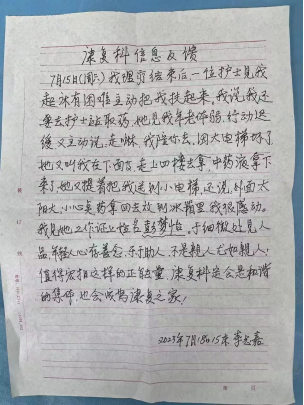 康复科信息反馈
7月15日(周六)我理疗结束后一位护士见我
起床有困难主动把我扶起来,我说我还
要去护士站取药,她见我年老体弱,行动迟
缓又主动说,走嘛,我陪你去,因大电梯坏了
她又叫我在下面等,走上四楼去拿,中药液拿下
来了她又提着把我送到小电梯,还说,外面太
阳大,小心点药拿回去放到冰箱里,我很感动。
我见她工作证上姓名彭梦怡,于细微处见人
品,年轻人心存善念,乐于助人,不是亲人尤如亲人,
值得宏扬这样的正能量,康复科定会是和谐
的集体,也会成为康复之家!
2023年7月18日